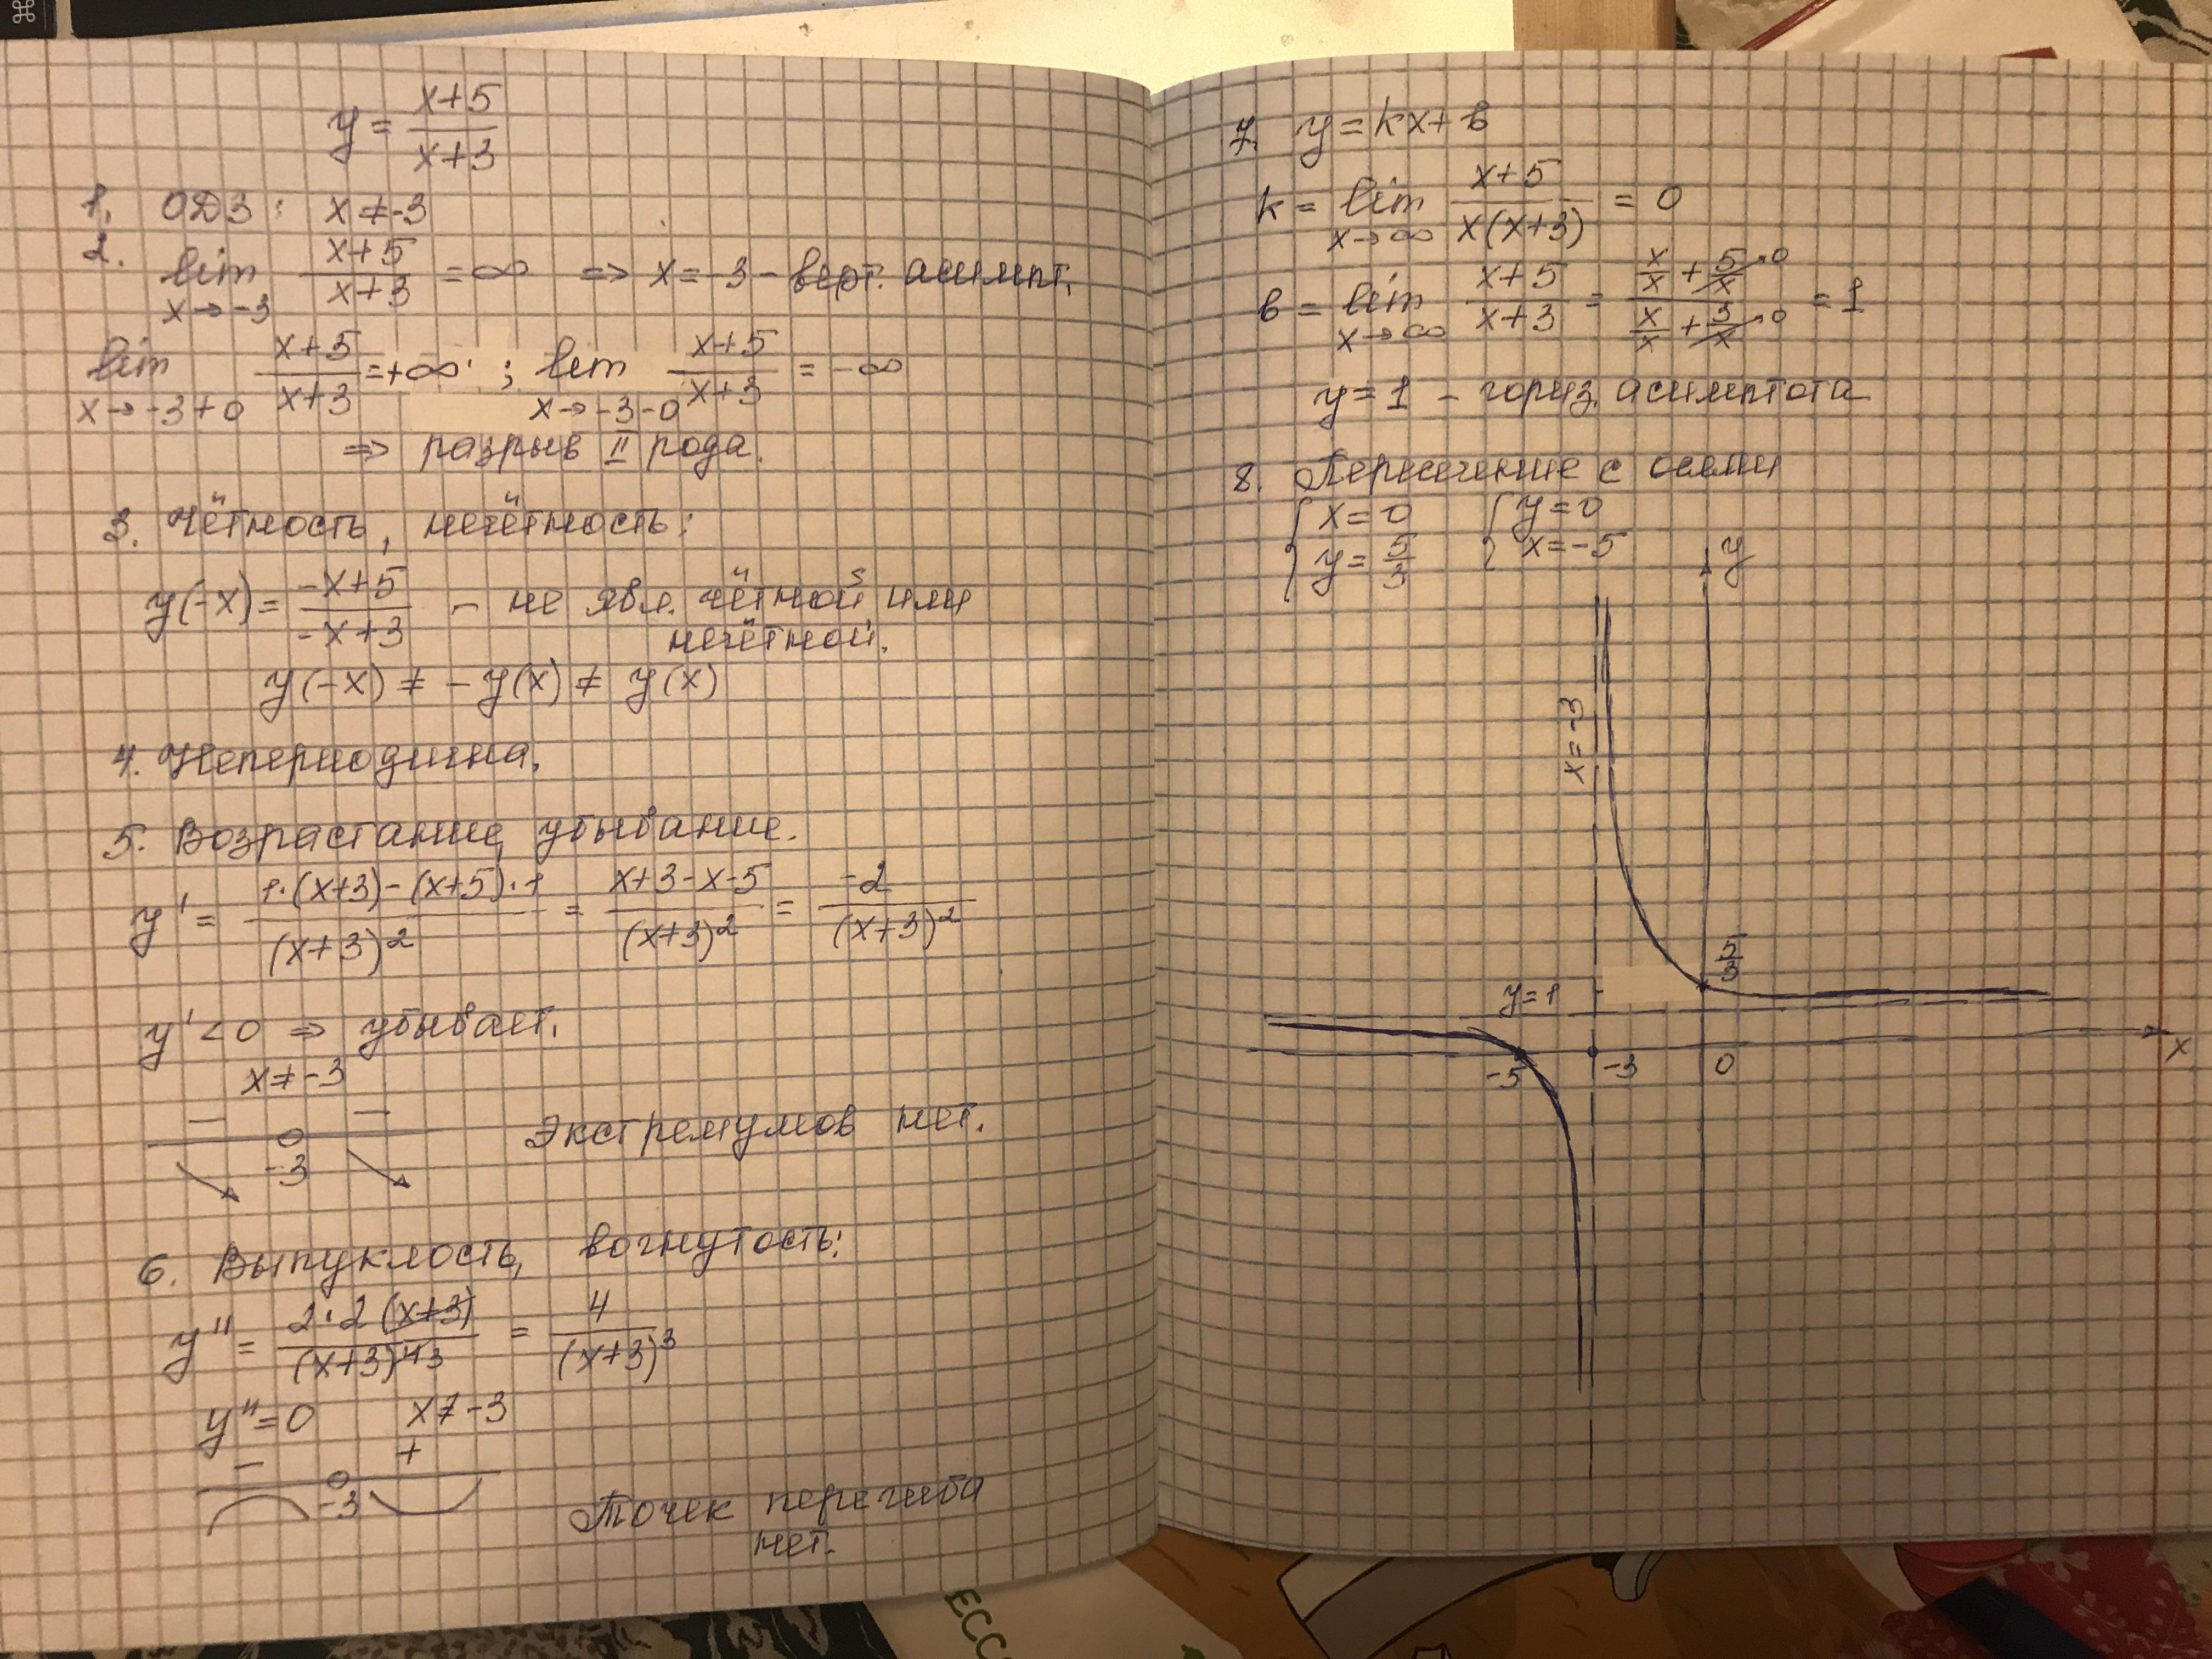 y = (x+5)/(x+3)
1. ОДЗ: x ≠ -3
2. lim x→-3 (x+5)/(x+3) = ∞ ⇒ x = -3 - верт. асимпт.
lim x→-3+0 (x+5)/(x+3) = +∞ ; lim x→-3-0 (x+5)/(x+3) = -∞
⇒ разрыв II рода.
3. Чётность, нечётность:
y(-x) = (-x+5)/(-x+3) - не явл. чётной или
нечётной.
y(-x) ≠ -y(x) ≠ y(x)
4. Непериодична.
5. Возрастание, убывание.
y' = (1·(x+3)-(x+5)·1)/(x+3)² = (x+3-x-5)/(x+3)² = -2/(x+3)²
y' < 0 ⇒ убывает.
x ≠ -3
- -
-3
Экстремумов нет.
6. Выпуклость, вогнутость:
y'' = 2·2(x+3)/(x+3)⁴ ³ = 4/(x+3)³
y'' = 0 x ≠ -3
- +
-3
Точек перегиба
нет.
7. y = kx + в
k = lim x→∞ (x+5)/(x(x+3)) = 0
в = lim x→∞ (x+5)/(x+3) = (x/x + 5/x→0)/(x/x + 3/x→0) = 1
y = 1 - гориз. асимптота
8. Пересечение с осями
{ x = 0 { y = 0
y = 5/3 x = -5
y
x = -3
5/3
y = 1
-5 -3 0 x
ЕСС